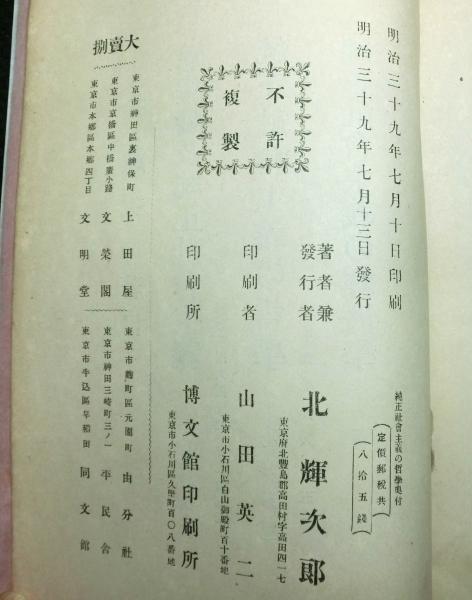 明治三十九年七月十日印刷
明治三十九年七月十三日發行
純正社會主義の哲學奥付
(定價郵税共)
(八拾五錢)
不許
複製
著者兼
發行者
北輝次郎
東京府北豐島郡高田村字高田四一七
印刷者
山田英二
東京市小石川區白山御殿町百十番地
印刷所
博文館印刷所
東京市小石川區久堅町百〇八番地
大賣捌
東京市神田區裏神保町
上田屋
東京市京橋區中橋廣小路
文榮閣
東京市本郷區本郷四丁目
文明堂
東京市麹町區元園町
由分社
東京市神田三崎町三ノ一
平民舍
東京市牛込區早稲田
同文館